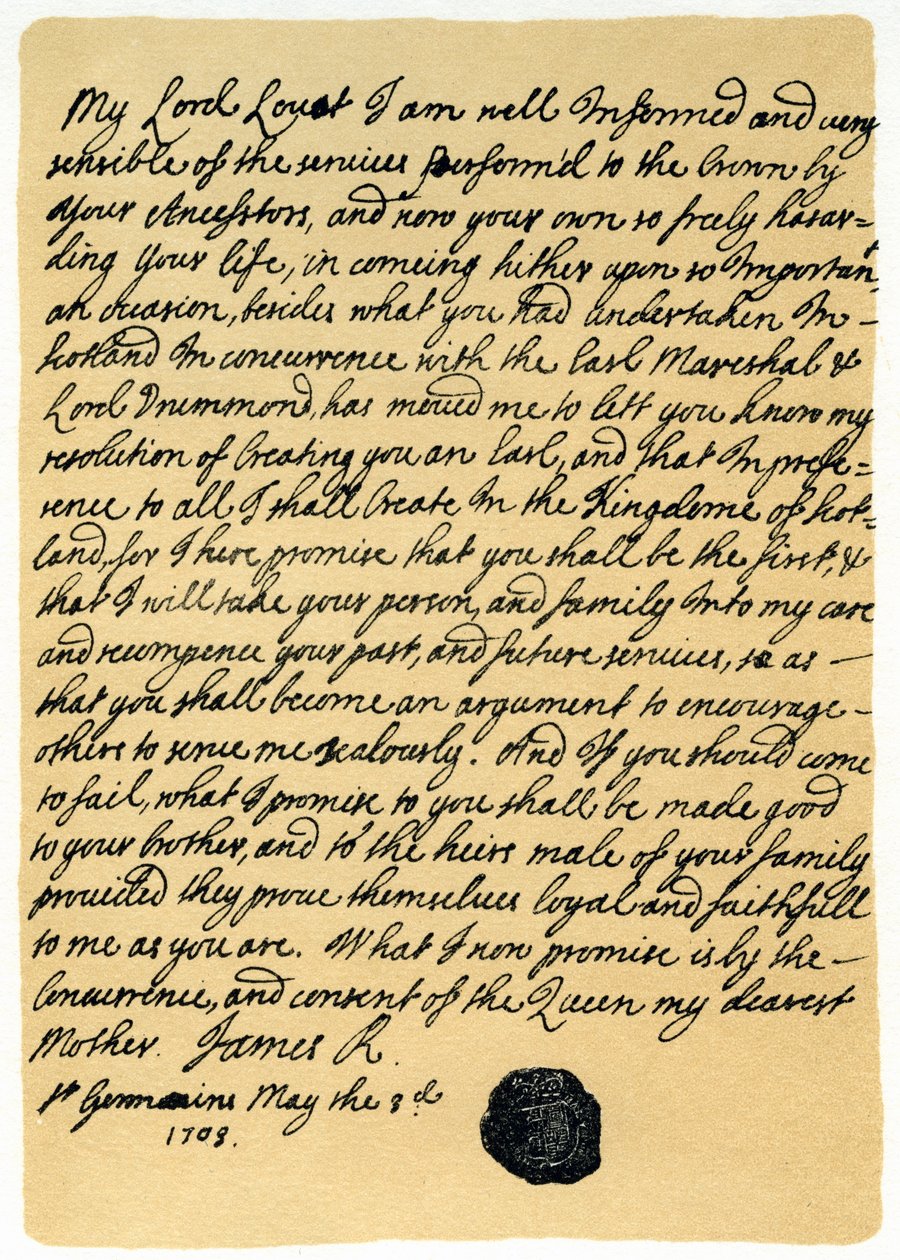 My Lord Lovat I am well Informed and very
sensible of the services perform'd to the Crown by
your Ancesstors, and now your own so freely hasar=
ding your life, in comeing hither upon so Important
an occasion, besides what you had undertaken In —
Scotland In concurrence with the Earl Mareshal &
Lord Drummond, has moued me to lett you know my
resolution of Creating you an Earl, and that In prefe=
rence to all I shall Create In the Kingdome of Scot=
land, for I here promise that you shall be the first, &
that I will take your person, and family Into my care
and recompence your past, and future services, so as —
that you shall become an argument to encourage —
others to serue me zealously. And If you should come
to fail, what I promise to you shall be made good
to your brother, and to the heirs male of your family
prouided they proue themselues loyal and faithfull
to me as you are. What I now promise is by the —
Concurrence, and consent of the Queen my dearest
Mother. James R.
St Germains May the 3d
1703.